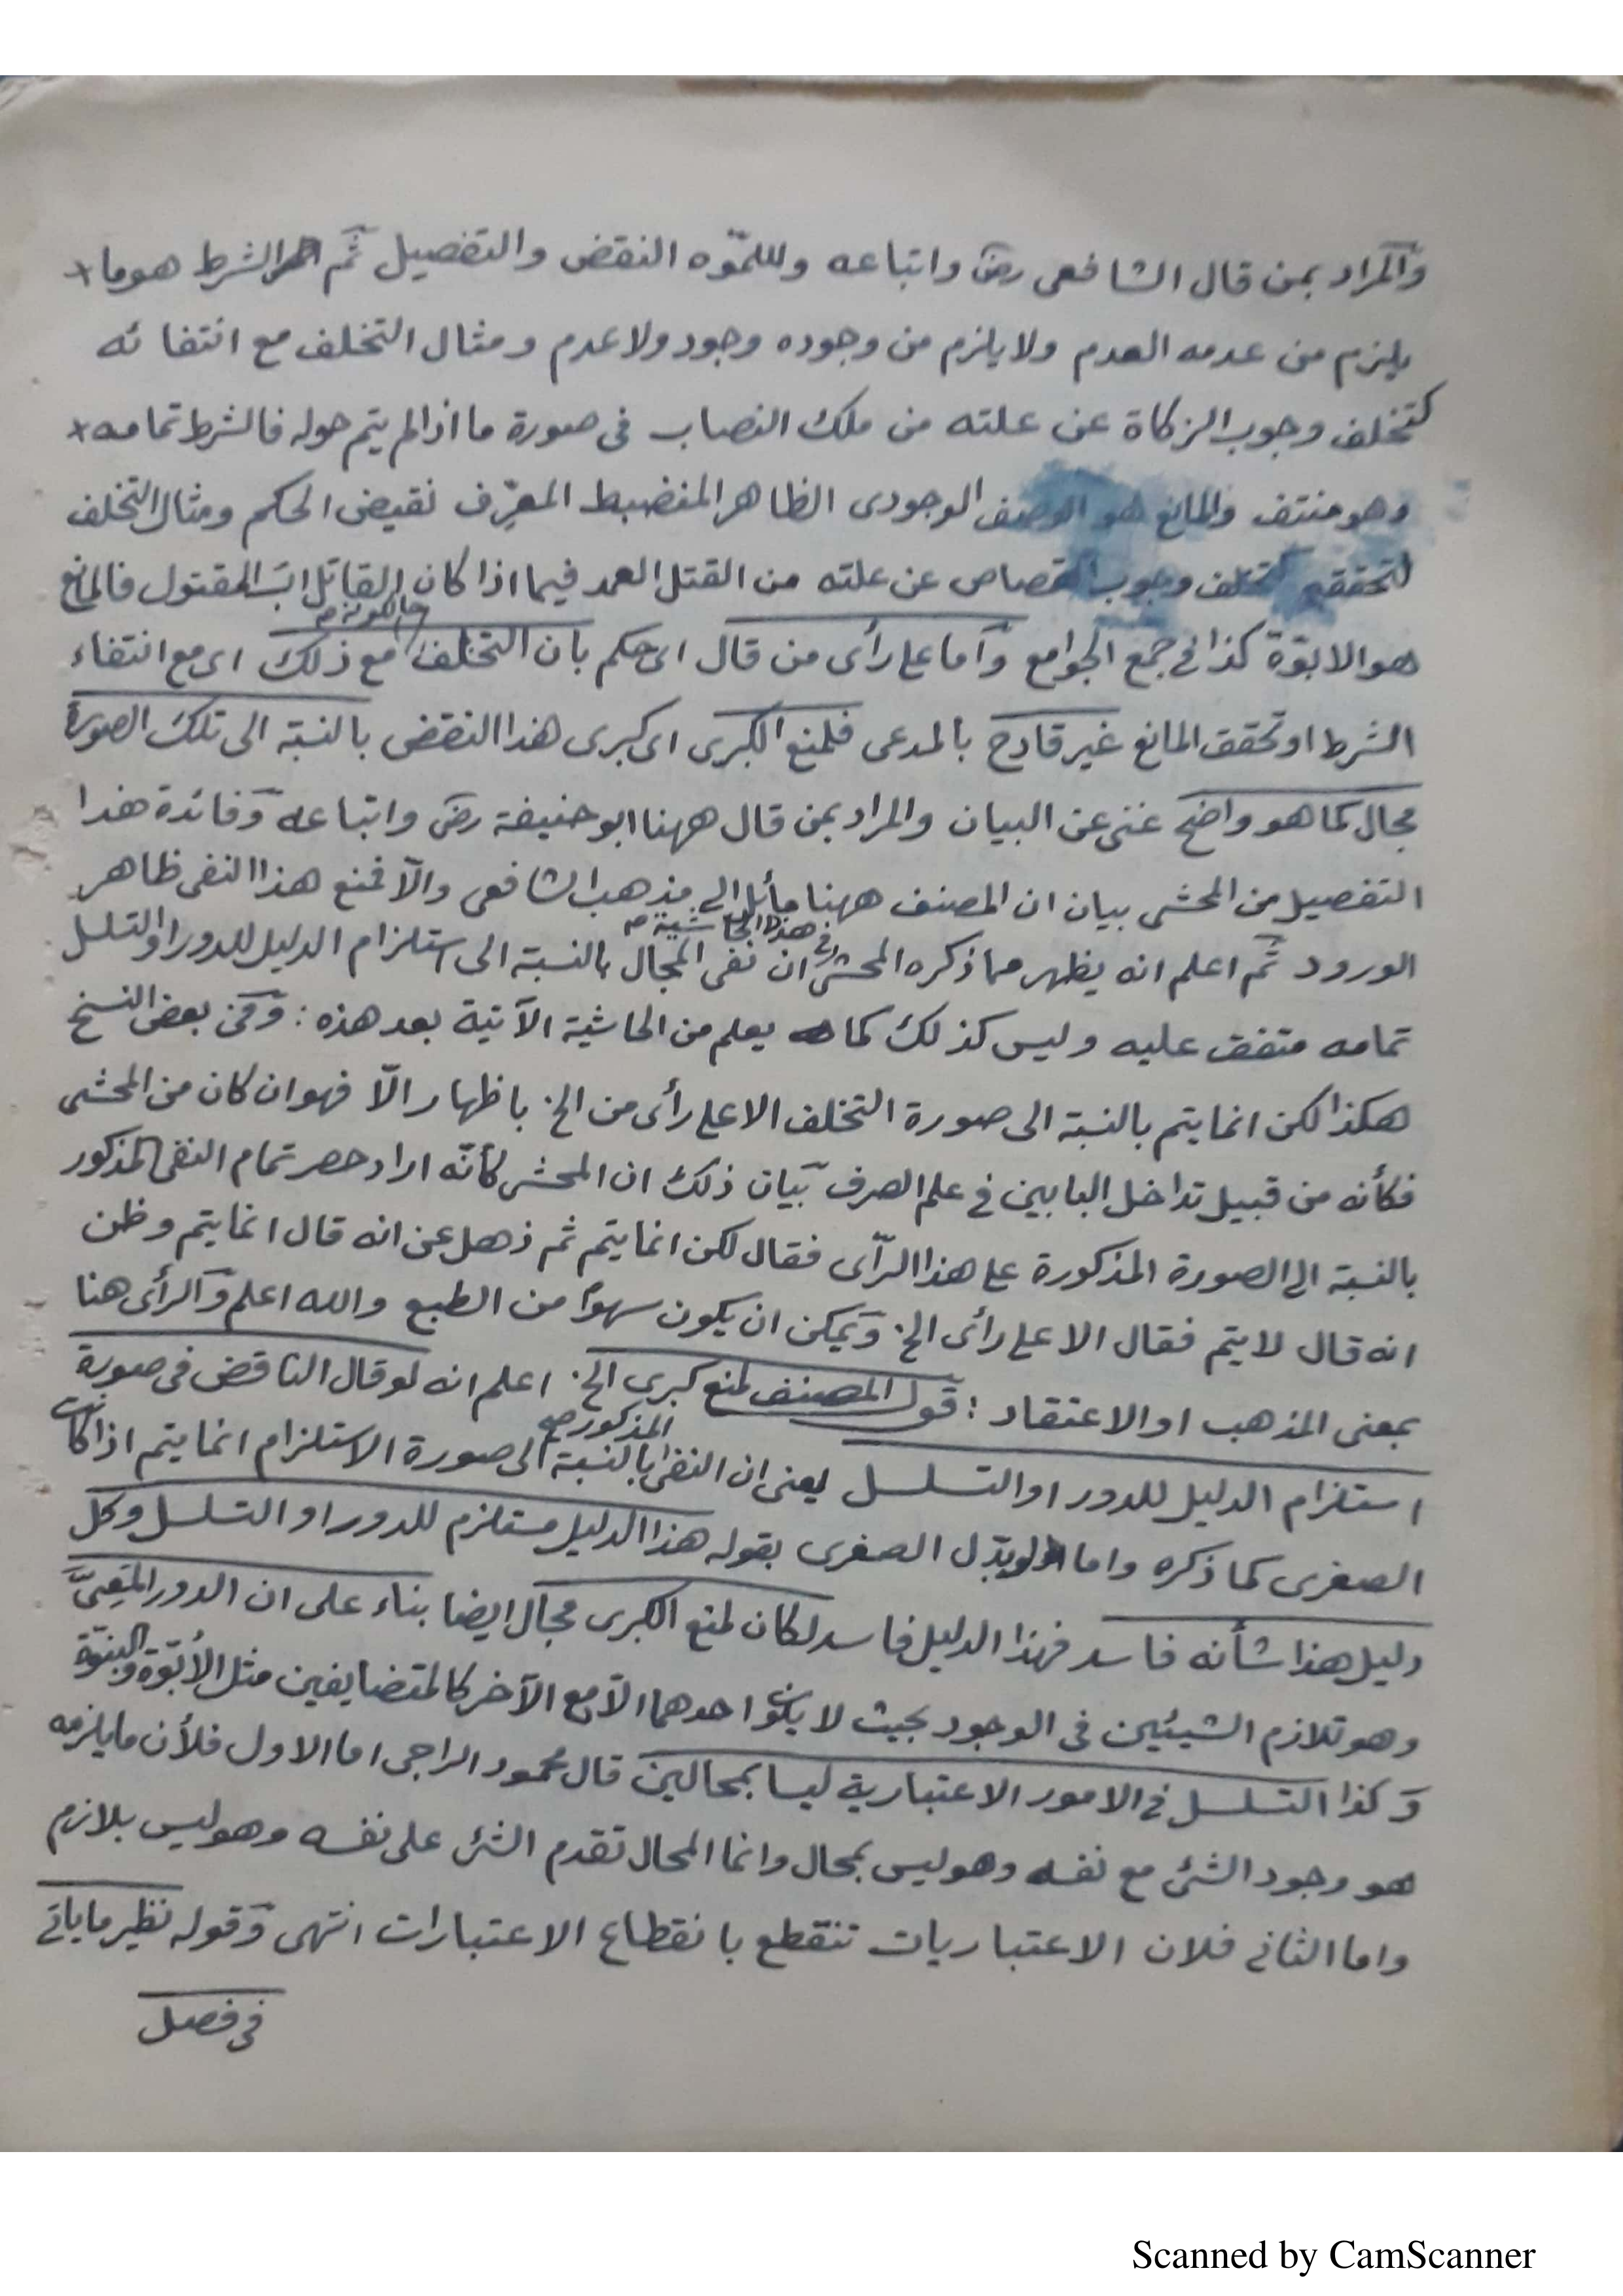 والمراد بمن قال الشافعى رض واتباعه النقض والتفصيل ثم الشرط هو ما
يلزم من عدمه العدم ولا يلزم من وجوده وجود ولا عدم ومثال التخلف مع انتفائه
كتخلف وجوب الزكاة عن علته من ملك النصاب فى صورة ما اذا لم يتم حوله فالشرط تمامه
وهو منتف والمانع هو الوصف الوجودى الظاهر المنضبط المعرّف نقيض الحكم ومثال التخلف
لتحققه كتخلف وجوب القصاص عن علته من القتل العمد فيما اذا كان القاتل اب المقتول فالمانع
هو الابوّة كذا فى جمع الجوامع وأما على رأى من قال اى حكم بان التخلف مع ذلك اى مع انتفاء
الشرط او تحقق المانع غير قادح بالمدعى فلمنع الكبرى اى كبرى هذا النقض بالنسبة الى تلك الصورة
مجال كما هو واضح غنى عن البيان والمراد بمن قال ههنا ابو حنيفة رض واتباعه وفائدة هذا
التفصيل من المحشى بيان ان المصنف ههنا مائل الى مذهب الشافعى والّا فمنع هذا النفى ظاهر
الورود ثم اعلم انه يظهر مما ذكره المحشى فى هذا الحاشية ان نفى المجال بالنسبة الى استلزام الدليل للدور او التسلسل
تمامه متفق عليه وليس كذلك كما يعلم من الحاشية الآتية بعد هذه : وفى بعض النسخ
هكذا لكن انما يتم بالنسبة الى صورة التخلف الا على رأى من الخ. باظهار الّا فهو ان كان من المحشى
فكأنه من قبيل تداخل البابين فى علم الصرف بيان ذلك ان المحشى كأنّه اراد حصر تمام النفى المذكور
بالنسبة الى الصورة المذكورة على هذا الرّأى فقال لكن انما يتم ثم ذهل عن انه قال انما يتم وظن
انه قال لا يتم فقال الا على رأى الخ. ويمكن ان يكون سهوًا من الطبع والله اعلم والرأى هنا
بمعنى المذهب او الاعتقاد : قول المصنف لمنع كبرى الخ. اعلم انه لو قال الناقض فى صورة
استلزام الدليل للدور او التسلسل يعنى ان النفى المذكور صح بالنسبة الى صورة الاستلزام انما يتم اذا كانت
الصغرى كما ذكره واما لو بدّل الصغرى بقوله هذا الدليل مستلزم للدور او التسلسل وكل
دليل هذا شأنه فاسد فهذا الدليل فاسد لكان لمنع الكبرى مجال ايضا بناء على ان الدور المعيّ
وهو تلازم الشيئين فى الوجود بحيث لا يكون احدهما الّا مع الآخر كالمتضايفين مثل الأبوّة والبنوّة
وكذا التسلسل فى الامور الاعتبارية ليسا بمحالين قال محمود الراجى اما الاول فلأن ما يلزمه
هو وجود الشئ مع نفسه وهو ليس بمحال وانما المحال تقدم الشئ على نفسه وهو ليس بلازم
واما الثانى فلان الاعتباريات تنقطع بانقطاع الاعتبارات انتهى وقوله نظير ما يأتى
فى فصل
Scanned by CamScanner